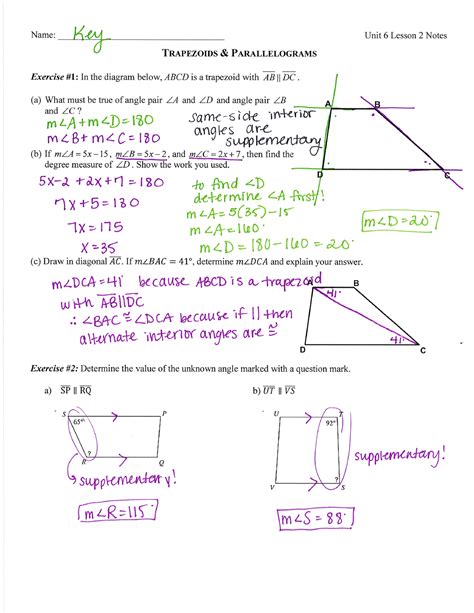 Name: Key Unit 6 Lesson 2 Notes
TRAPEZOIDS & PARALLELOGRAMS
Exercise #1: In the diagram below, ABCD is a trapezoid with AB || DC.
(a) What must be true of angle pair ∠A and ∠D and angle pair ∠B
and ∠C ?
m∠A + m∠D = 180
m∠B + m∠C = 180
same-side interior
angles are
supplementary
A B
D C
(b) If m∠A = 5x−15, m∠B = 5x−2, and m∠C = 2x+7, then find the
degree measure of ∠D. Show the work you used.
5x-2 + 2x+7 = 180
7x + 5 = 180
7x = 175
x = 35
to find ∠D
determine ∠A first!
m∠A = 5(35) - 15
m∠A = 160°
m∠D = 180 - 160 = 20°
m∠D = 20°
(c) Draw in diagonal AC. If m∠BAC = 41°, determine m∠DCA and explain your answer.
m∠DCA = 41° because ABCD is a trapezoid
with AB||DC
∴ ∠BAC ≅ ∠DCA because if || then
alternate interior angles are ≅
A B
41°
41°
D C
Exercise #2: Determine the value of the unknown angle marked with a question mark.
a) SP || RQ b) UT || VS
S P
65°
?
R Q
supplementary!
m∠R = 115°
U T
92°
?
V S
supplementary!
m∠S = 88°